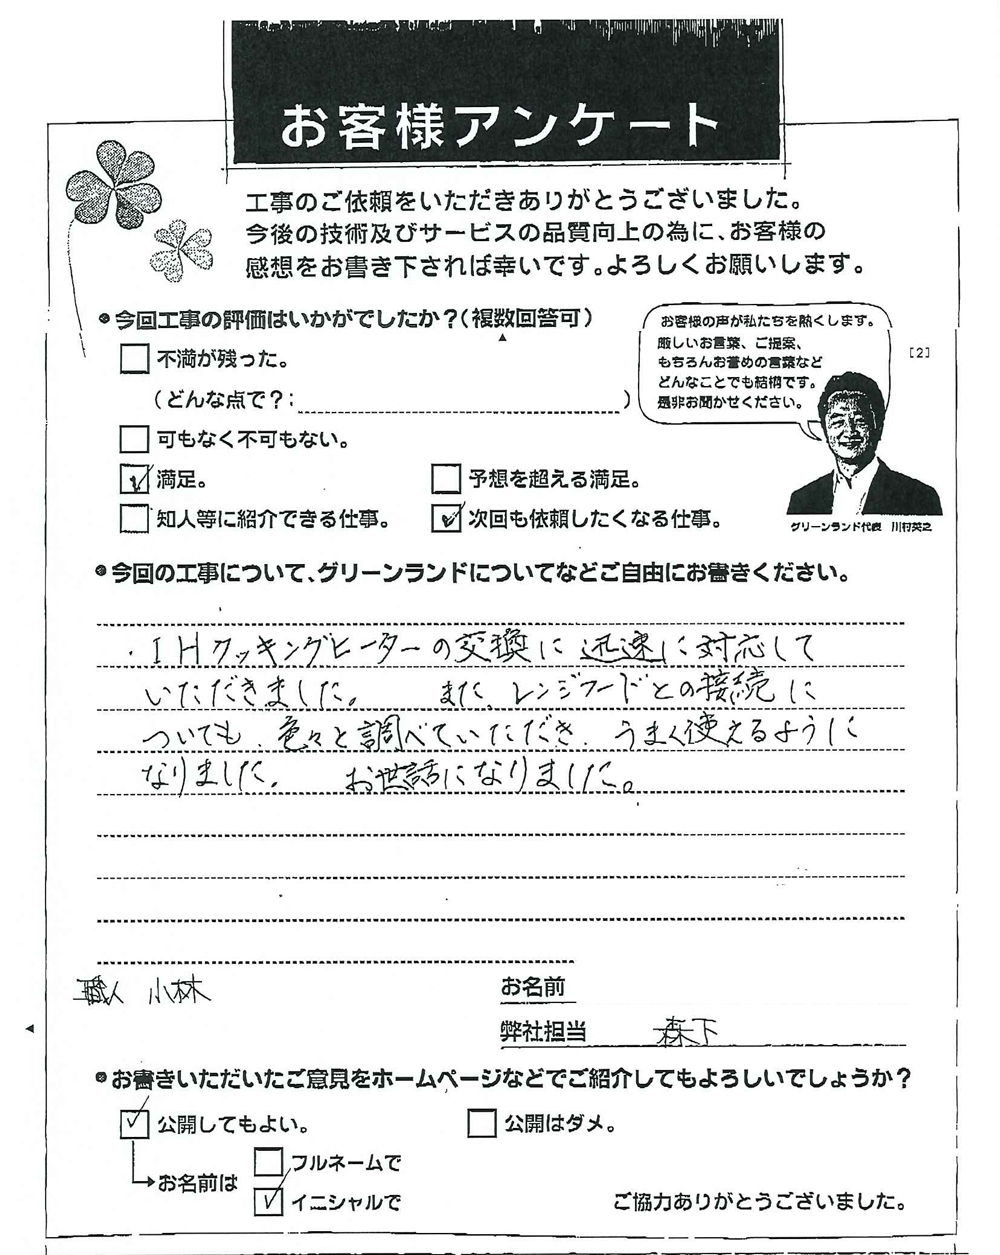 お客様アンケート
工事のご依頼をいただきありがとうございました。
今後の技術及びサービスの品質向上の為に、お客様の
感想をお書き下されば幸いです。よろしくお願いします。
●今回工事の評価はいかがでしたか？(複数回答可)
お客様の声が私たちを熱くします。
厳しいお言葉、ご提案、
もちろんお誉めの言葉など
どんなことでも結構です。
是非お聞かせください。
[2]
不満が残った。
(どんな点で？: )
可もなく不可もない。
満足。
予想を超える満足。
知人等に紹介できる仕事。
次回も依頼したくなる仕事。
グリーンランド代表 川村英之
●今回の工事について、グリーンランドについてなどご自由にお書きください。
・IHクッキングヒーターの交換に迅速に対応して
いただきました。 また、レンジフードとの接続に
ついても、色々と調べていただき、うまく使えるように
なりました。 お世話になりました。
職人 小林
お名前
弊社担当 森下
●お書きいただいたご意見をホームページなどでご紹介してもよろしいでしょうか？
公開してもよい。
公開はダメ。
お名前は
フルネームで
イニシャルで
ご協力ありがとうございました。